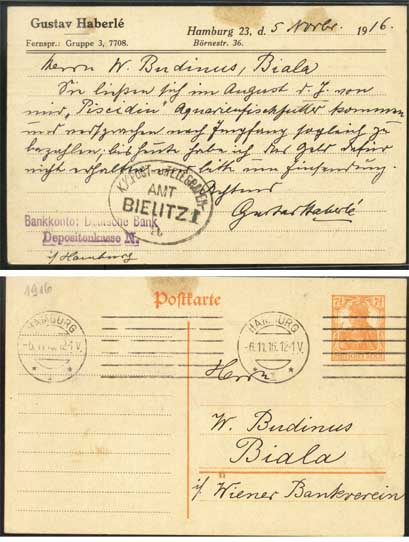 Gustav Haberlé
Fernspr.: Gruppe 3, 7708.
Hamburg 23, d. 5 Novbr. 1916.
Börnestr. 36.
Herrn W. Budinus, Biala
Sie ließen sich im August d. J. von
mir „Piscidin" Aquarienfischfutter kommen
und versprachen nach Empfang sogleich zu
bezahlen, bis heute habe ich das Geld dafür
nicht erhalten bitte um Einsendung.
Achtend
Gustav Haberlé
K.K. POST- u. TELEGRAPHEN-
AMT
BIELITZ 1
Bankkonto: Deutsche Bank
Depositenkasse N.
i/ Hamburg
1916
Postkarte
HAMBURG
-6.11.16.12-1V.
* 1 *
HAMBURG
-6.11.16.12-1V.
* 1 *
7½ 7½
DEUTSCHES REICH
Herrn
W. Budinus
Biala
i/ Wiener Bankverein